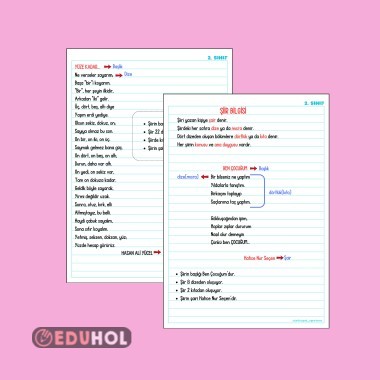 2. SINIF
YÜZE KADAR... → Başlık
Ne verseler sayarım, → Dize
Başa "bir"i koyarım.
"Bir", her şeyin ilkidir.
Arkadan "iki" gelir.
Üç, dört, beş, altı diye
Yaşım erdi yediye.
Olsun sekiz, dokuz, on.
Sayıya olmaz bu son.
On bir, on iki, on üç
Saymak gelmez bana güç.
On dört, on beş, on altı,
Durun, daha var altı.
On yedi, on sekiz var,
Tam on dokuza kadar.
Geldik böyle sayarak,
Yirmi değildir uzak.
Sonra, otuz, kırk, elli
Altmıştayız, bu belli.
Haydi çabuk sayalım.
Sona sıfır koyalım.
Yetmiş, seksen, doksan, yüz,
Yüzde hesap görürüz.
HASAN ALİ YÜCEL →
Şiirin
Şiir 22 d
Şiirde
Şiirin
2. SINIF
ŞİİR BİLGİSİ
Şiri yazan kişiye şair denir.
Şiirdeki her satıra dize ya da mısra denir.
Dört dizeden oluşan bölümlere dörtlük ya da kıta denir.
Her şiirin konusu ve ana duygusu vardır.
BEN ÇOCUĞUM → Başlık
dize(mısra) ← Bir bilseniz ne yaptım
Yıldızlarla tanıştım.
Birikişini topladım
Saçlarıma taç yaptım.
dörtlük(kıta)
Gökkuşağından işem,
Kuşlar aşlar dururum
Nasıl olur demeyin
Çünkü ben ÇOCUĞUM...
Hatice Nur Seçen → Şair
Şiirin başlığı Ben Çocuğum'dur.
Şiir 8 dizeden oluşuyor.
Şiir 2 kıtadan oluşuyor.
Şiirin şairi Hatice Nur Seçen'dir.
EDUHOL